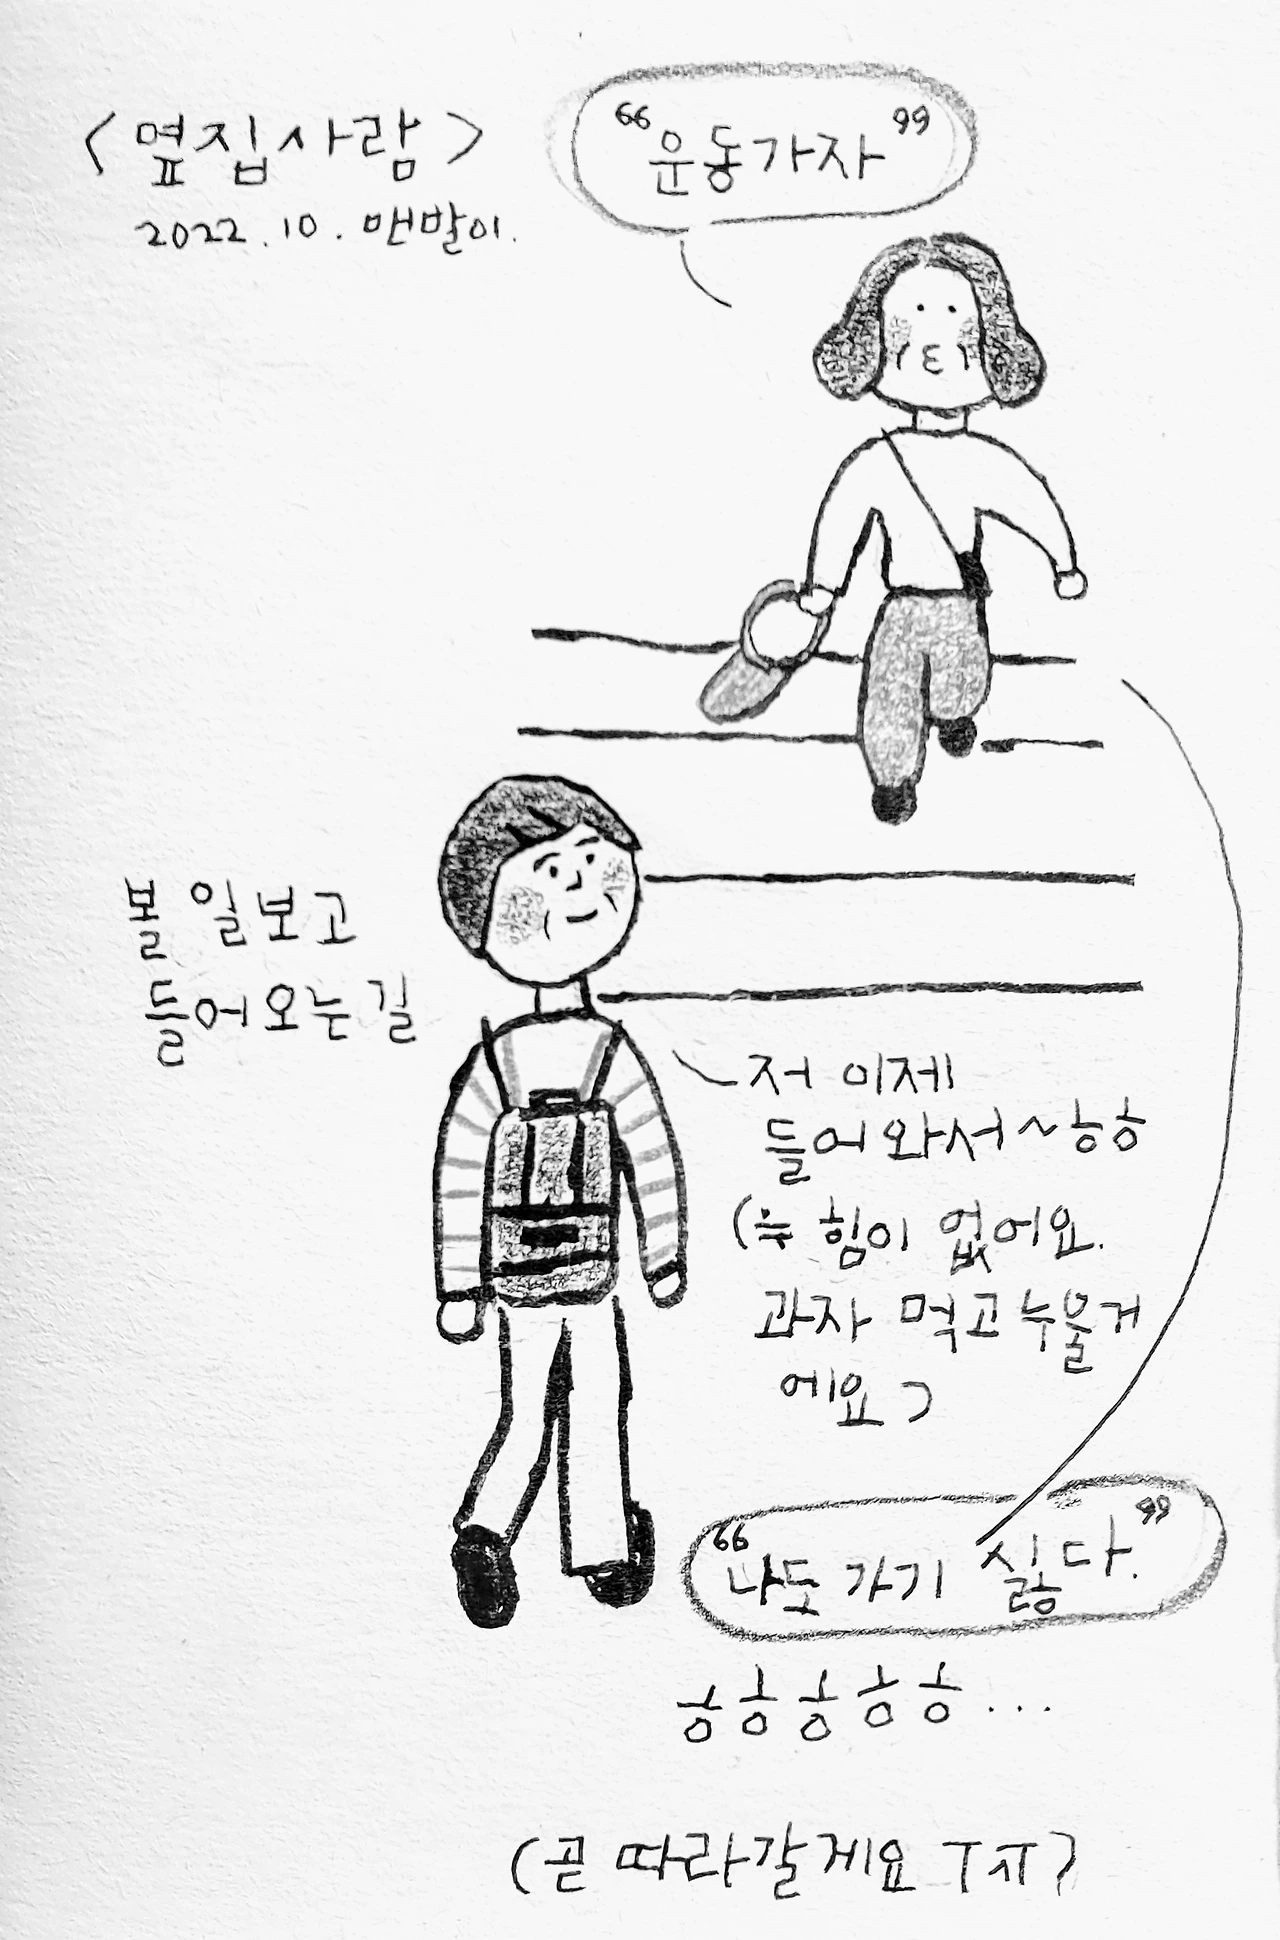 <옆집사람>
2022.10. 맨발이.
“운동가자”
볼 일보고
들어오는길
저 이제
들어와서~ㅎㅎ
(눈 힘이 없어요.
과자 먹고 누울거
에요)
“나도 가기 싫다.”
흥흥흥흥흥...
(곧 따라갈게요 ㅜㅠ)